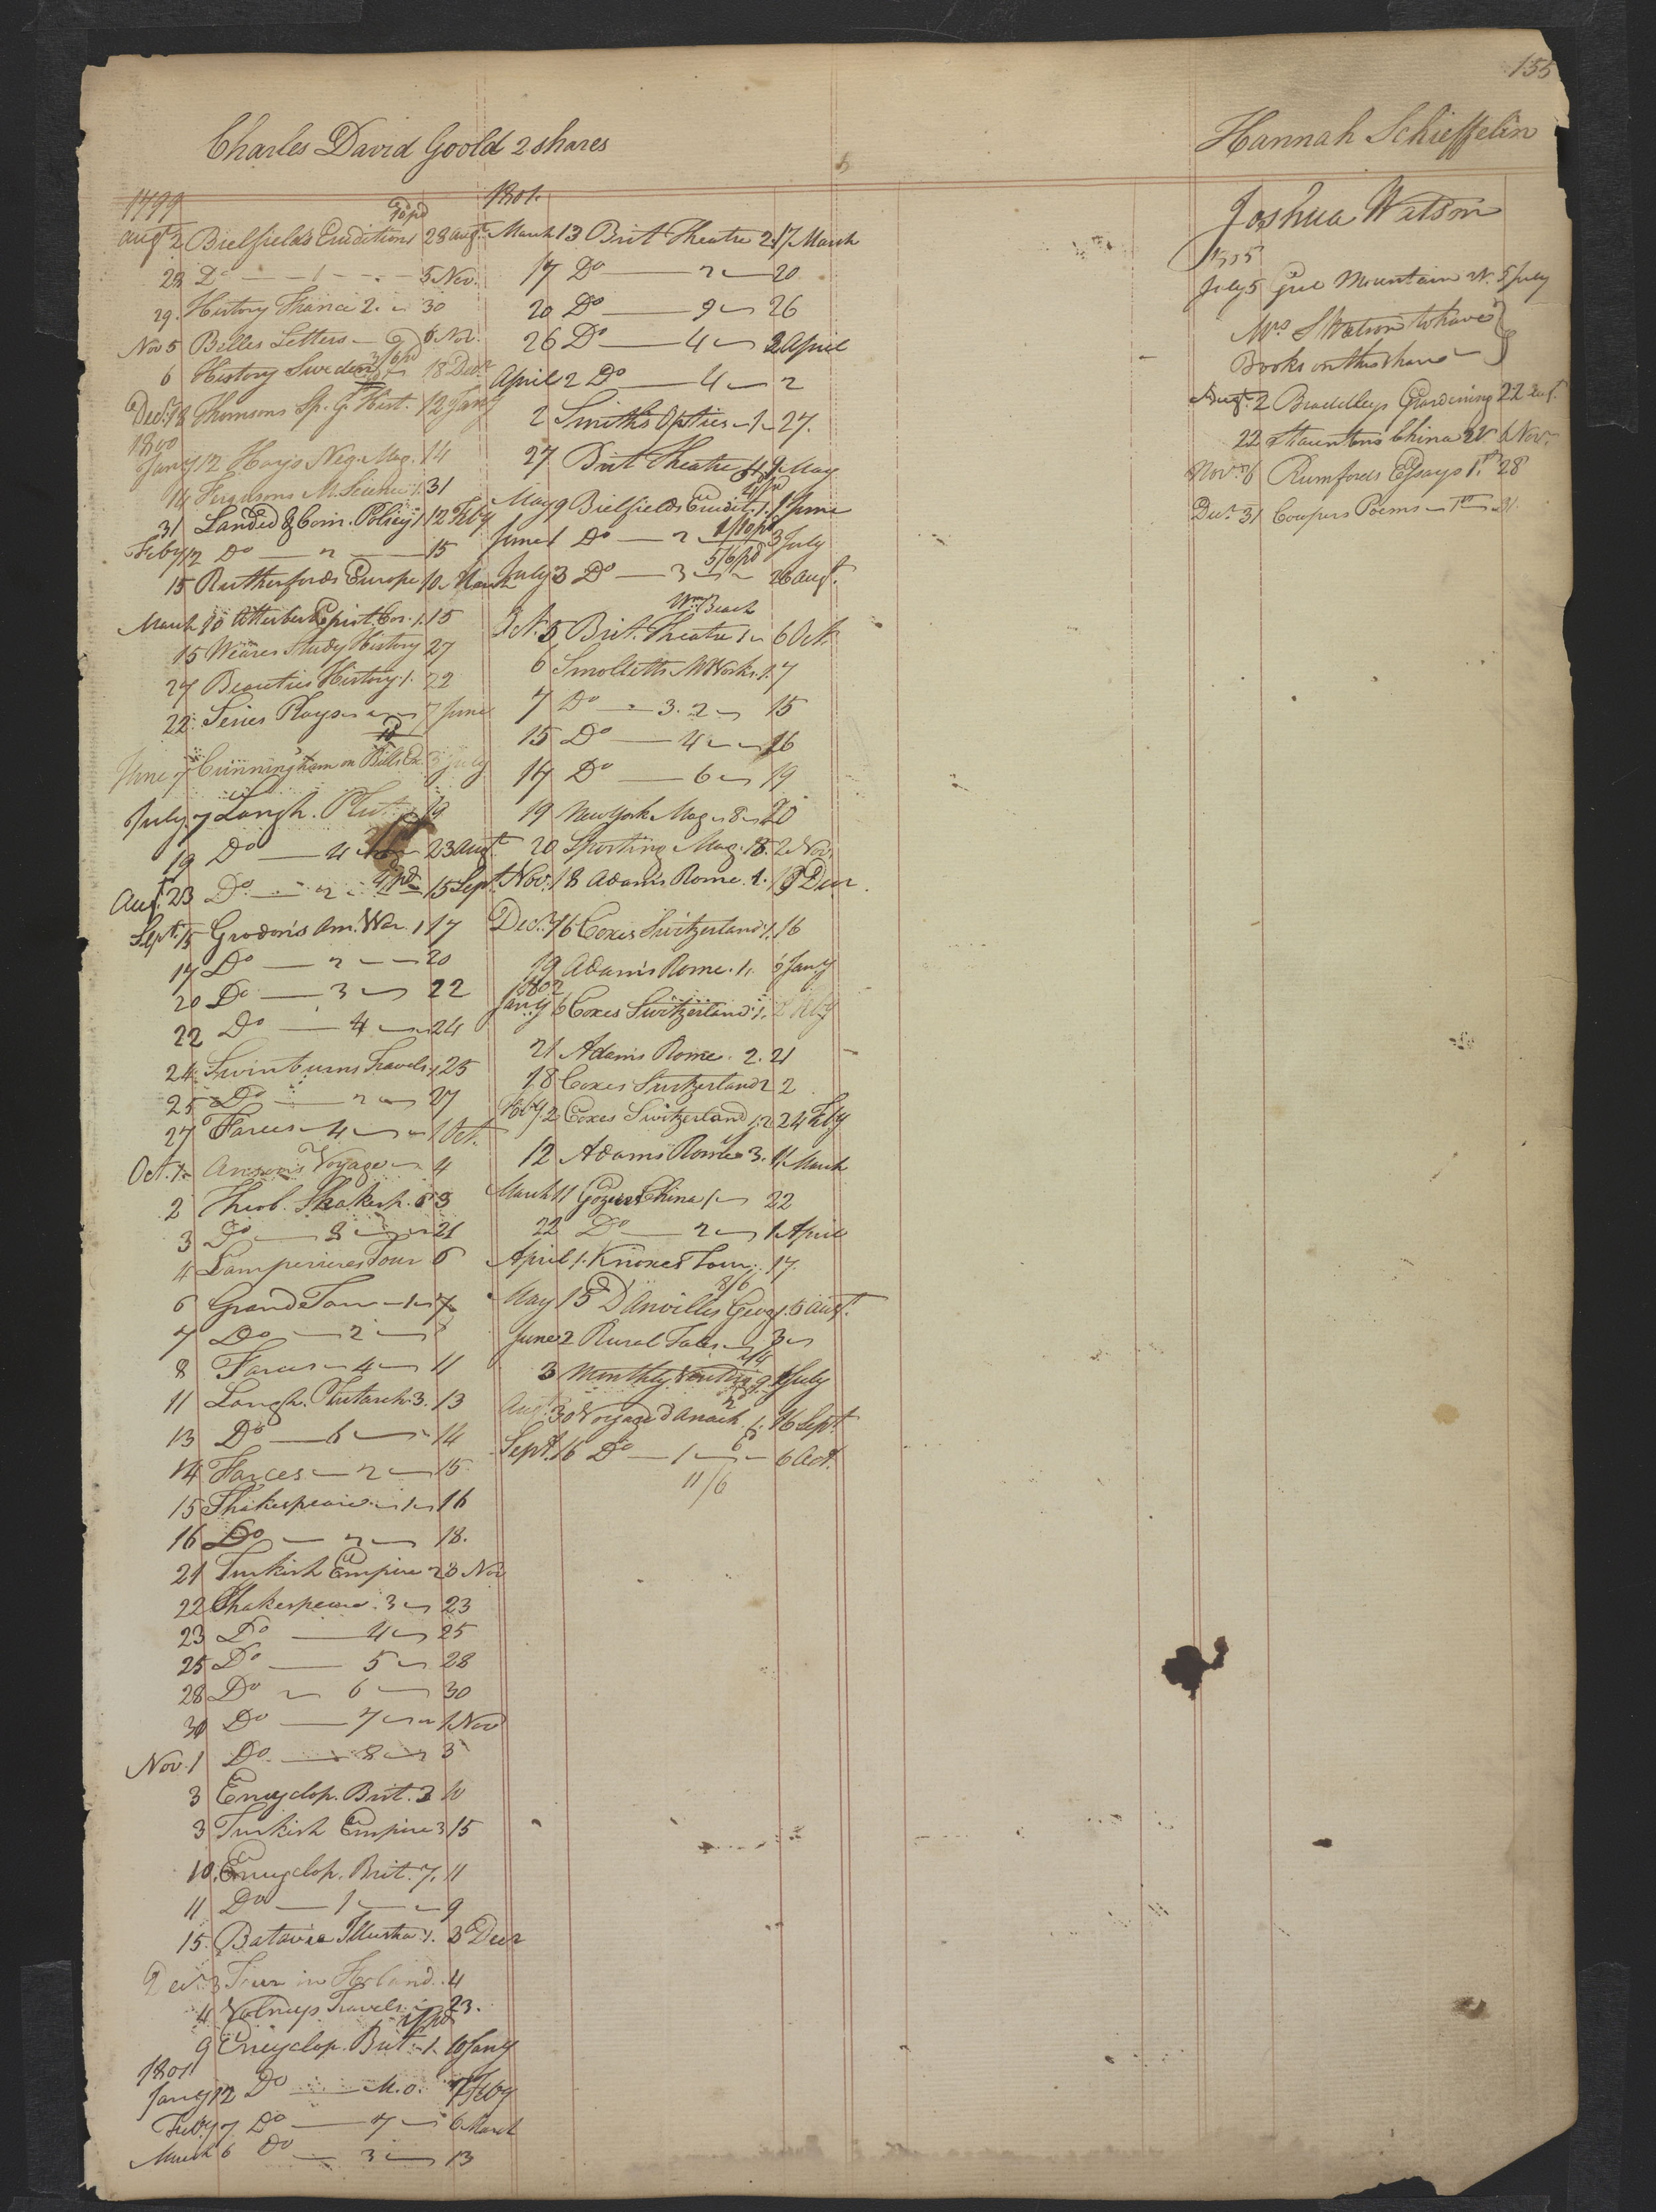 155
Charles David Goold 2 shares
1799
/10 pd
Augt 2 Bielfield's Erudition 28 Augt
28 Do — 1 — 5 Nov.
29. History France 2. 30
Nov 5 Belles Letters — 6 Nov.
3/6 pd
6 History Sweden 18 Decr
Decr 18 Thomsons Sp. G. Hist. 12 Jany
1800
Jany 12 Hays Neg. Mag. 14
14 Fergusons M. Science 1. 31
31 Landed & Com. Policy 1 12 Feby
Feby 12 Do — 2 — 15
15 Rutherfords Europe 10 March
March 10 Atterbury Epist. Cor. 1. 15
15 Weares Study History 27
27 Beauties History 1. 22
22 Series Plays 7 June
pd
June 7 Cunningham on Bills &c. 3 July
July 7 Langh. Plut. 19
19 Do — 4 — 23 Augt
4/ pd
Augt. 23 Do — 2 — 15 Sept.
Sept. 15 Grodon's Am. War. 1 17
17 Do — 2 — 20
20 Do — 3 — 22
22 Do — 4 — 24
24. Swinburns Travels. 1 25
25 Do — 2 — 27
27 Farces — 4 — 1 Oct.
Oct. 1 Anson's Voyage — 4
2 Theob. Shakesp. 8 3
3 Do — 8 — 21
4 Lamperieres Tour 6
6 Grand Tour — 1 — 7
7 Do — 2 — 8
8 Farces — 4 — 11
11 Langh. Plutarch. 3. 13
13 Do — 6 — 14
14 Farces — 2 — 15
15 Shakespeare — 1 — 16
16 Do — 2 — 18.
21 Turkish Empire 2 3 Nov
22 Shakespeare. 3 — 23
23 Do — 4 — 25
25 Do — 5 — 28
28 Do — 6 — 30
30 Do — 7 — 1 Nov
Nov. 1 Do — 8 — 3
3 Encyclop. Brit. 2 10
3 Turkish Empire 3 15
10. Encyclop. Brit. 7. 11
11 Do — 1 — 9
15. Batavia Illustra. 1. 3 Decr
Decr. 3 Tour in Holand. 4
4 Volneys Travels 23.
9 Encyclop. Brit. 1. 10 Jany
1801
Jany 12 Do — M.o. 7 Feby
Feby 7 Do — 7 — 6 March
March 6 Do — 3 — 13
1801.
March 13 Brit Theatre 2. 17 March
17 Do — 2 — 20
20 Do — 9 — 26
26 Do — 4 — 2 April
April 2 Do — 4 — 2
2 Smith's Optics — 1 — 27.
27 Brit Theatre 4 9 May
May 9 Bielfields Erudit. 1. 1 June
1/10 pd
June 1 Do — 2 — 3 July
5/6 pd
July 3 Do — 3 — 26 Augt.
Wm. Beach
Oct. 5 Brit. Theatre 1 6 Oct.
6 Smolletts M Works. 1. 7
7 Do — 3. 2 — 15
15 Do — 4 — 16
17 Do — 6 — 19
19 New York Mag. 8 — 20
20 Sporting Mag. 18. 2 Nov.
Nov. 18 Adam's Rome. 1. 19 Decr.
Dec. 16 Coxes Switzerland. 1. 16
19 Adam's Rome. 1. 6 Jany
1802
Jany 6 Coxes Switzerland 1. 2 Feby
21 Adams Rome. 2. 21
18 Coxes Switzerland 2 2
Feby 2 Coxes Switzerland 1. 2 24 Feby
12 Adams Rome 3. 11 March
March 11 Goziers China 1 — 22
22 Do — 2 — 1 April
April 1. Knoxes Tour. 17.
8/6
May 15 D'Anvilles Geog. 1. 5 Augt.
June 2 Rural Tales — 3
2/4
3 Monthly 9. 1 July
Aug. 30 Voyage d'Anach. 1. 16 Sept
Sept. 16 Do — 1 — 6 Oct.
11/6
Hannah Schieffelin
Joshua Watson
July 5 Gree Mountain W. 5 July
Mrs S Watson to have
Books on this share
Augt. 2 Braddleys Gardening 22 Augt.
22 Stauntons China 2 V. 6 Novr.
Novr 6 Rumfords Essays 1. 28
Decr. 31 Cowpers Poems — 1 — 31.